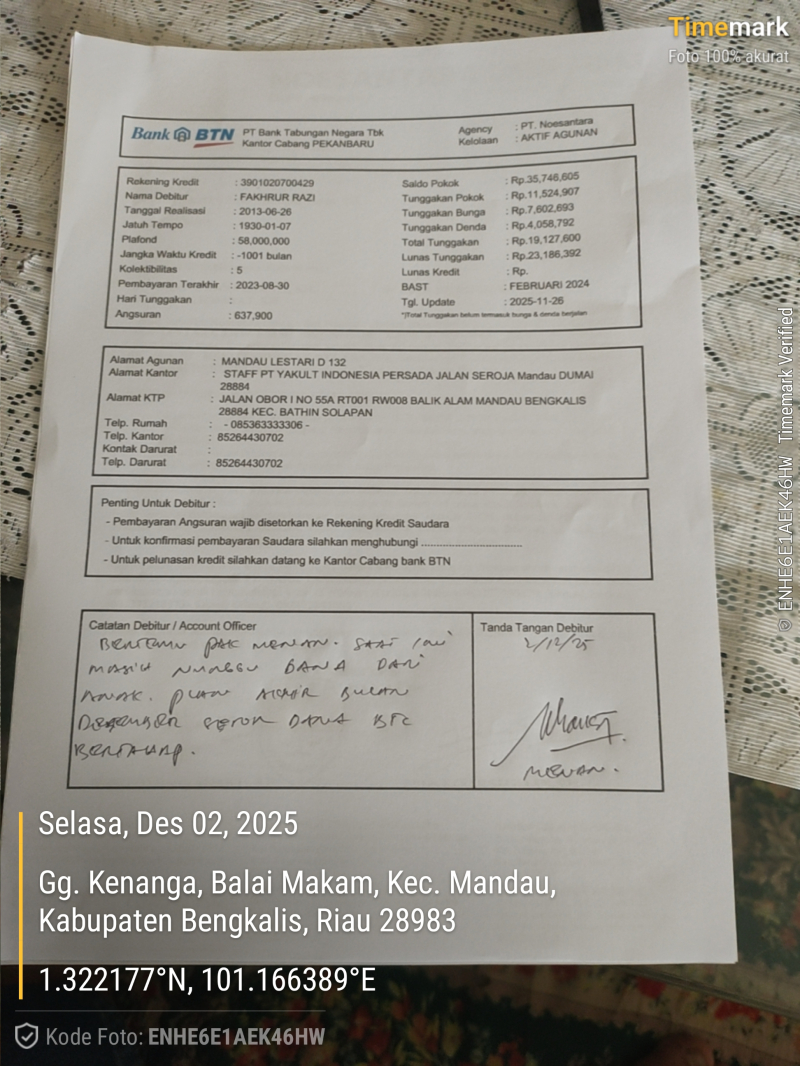 Timemark
Foto 100% akurat
Bank BTN PT Bank Tabungan Negara Tbk
Kantor Cabang PEKANBARU
Agency : PT. Noesantara
Kelolaan : AKTIF AGUNAN
Rekening Kredit : 3901020700429
Nama Debitur : FAKHRUR RAZI
Tanggal Realisasi : 2013-06-26
Jatuh Tempo : 1930-01-07
Plafond : 58,000,000
Jangka Waktu Kredit : -1001 bulan
Kolektibilitas : 5
Pembayaran Terakhir : 2023-08-30
Hari Tunggakan :
Angsuran : 637,900
Saldo Pokok : Rp.35,746,605
Tunggakan Pokok : Rp.11,524,907
Tunggakan Bunga : Rp.7,602,693
Tunggakan Denda : Rp.4,058,792
Total Tunggakan : Rp.19,127,600
Lunas Tunggakan : Rp.23,186,392
Lunas Kredit : Rp.
BAST : FEBRUARI 2024
Tgl. Update : 2025-11-26
*)Total Tunggakan belum termasuk bunga & denda berjalan
Alamat Agunan : MANDAU LESTARI D 132
Alamat Kantor : STAFF PT YAKULT INDONESIA PERSADA JALAN SEROJA Mandau DUMAI
28884
Alamat KTP : JALAN OBOR I NO 55A RT001 RW008 BALIK ALAM MANDAU BENGKALIS
28884 KEC. BATHIN SOLAPAN
Telp. Rumah : - 085363333306 -
Telp. Kantor : 85264430702
Kontak Darurat :
Telp. Darurat : 85264430702
Penting Untuk Debitur :
- Pembayaran Angsuran wajib disetorkan ke Rekening Kredit Saudara
- Untuk konfirmasi pembayaran Saudara silahkan menghubungi ...............................
- Untuk pelunasan kredit silahkan datang ke Kantor Cabang bank BTN
Catatan Debitur / Account Officer
BERTEMU PAK MENAN. SAAT INI
MASIH NUNGGU DANA DARI
ANAK. PLAN AKHIR BULAN
DESEMBER SETOR DANA
BERTAHAP.
Tanda Tangan Debitur
2/12/25
MENAN.
Selasa, Des 02, 2025
Gg. Kenanga, Balai Makam, Kec. Mandau,
Kabupaten Bengkalis, Riau 28983
1.322177°N, 101.166389°E
Kode Foto: ENHE6E1AEK46HW
© ENHE6E1AEK46HW Timemark Verified